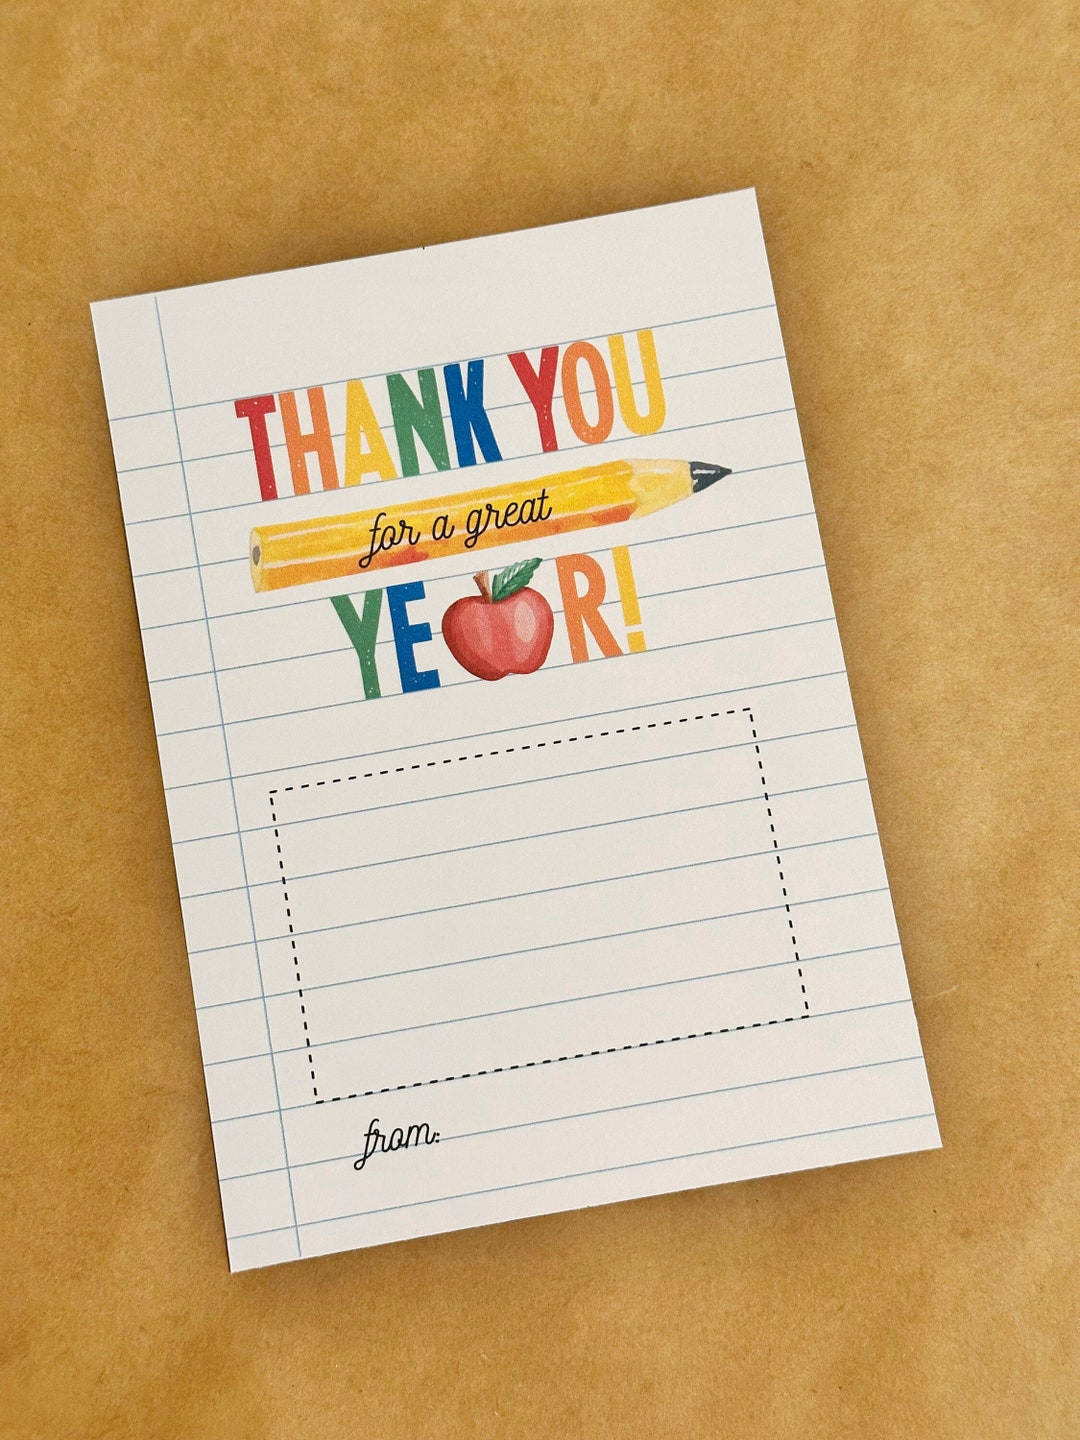 THANK YOU
for a great
YE R!
from: